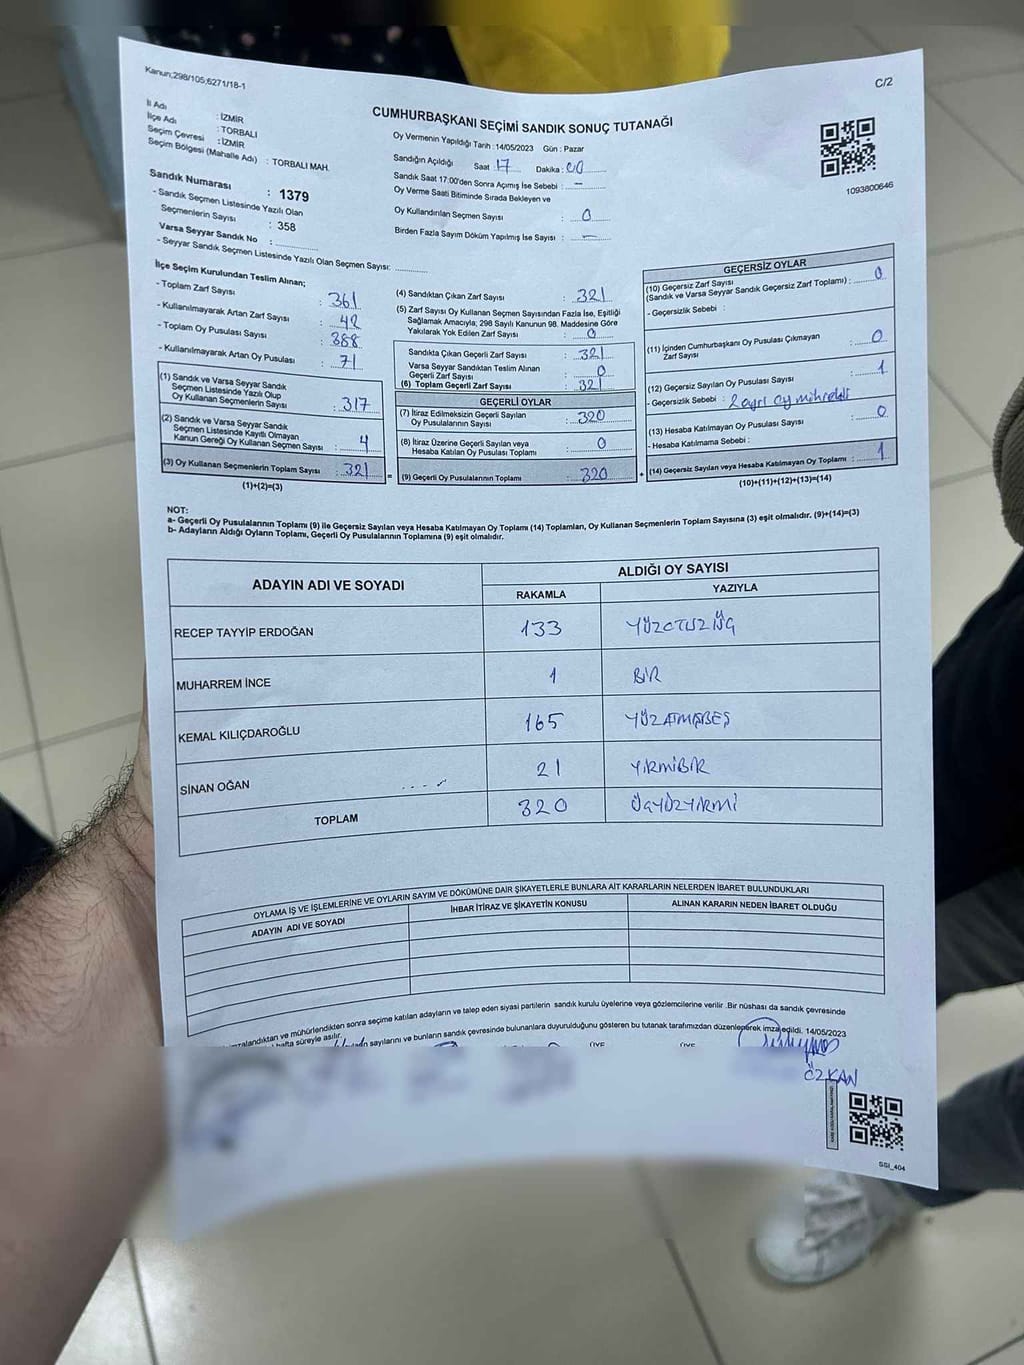 Kanun;298/105;6271/18-1
C/2
İl Adı : İZMİR
İlçe Adı : TORBALI
Seçim Çevresi : İZMİR
Seçim Bölgesi (Mahalle Adı) : TORBALI MAH.
Sandık Numarası : 1379
- Sandık Seçmen Listesinde Yazılı Olan
Seçmenlerin Sayısı : 358
Varsa Seyyar Sandık No :
- Seyyar Sandık Seçmen Listesinde Yazılı Olan Seçmen Sayısı:
CUMHURBAŞKANI SEÇİMİ SANDIK SONUÇ TUTANAĞI
Oy Vermenin Yapıldığı Tarih : 14/05/2023 Gün : Pazar
Sandığın Açıldığı Saat : 17 Dakika : 00
Sandık Saat 17:00'den Sonra Açımış İse Sebebi : –
Oy Verme Saati Bitiminde Sırada Bekleyen ve
Oy Kullandırılan Seçmen Sayısı : 0
Birden Fazla Sayım Döküm Yapılmış İse Sayısı : –
1093800646
İlçe Seçim Kurulundan Teslim Alınan;
- Toplam Zarf Sayısı : 361
- Kullanılmayarak Artan Zarf Sayısı : 42
- Toplam Oy Pusulası Sayısı : 388
- Kullanılmayarak Artan Oy Pusulası : 71
(1) Sandık ve Varsa Seyyar Sandık
Seçmen Listesinde Yazılı Olup
Oy Kullanan Seçmenlerin Sayısı : 317
(2) Sandık ve Varsa Seyyar Sandık
Seçmen Listesinde Kayıtlı Olmayan
Kanun Gereği Oy Kullanan Seçmen Sayısı : 4
(3) Oy Kullanan Seçmenlerin Toplam Sayısı : 321
(1)+(2)=(3)
(4) Sandıktan Çıkan Zarf Sayısı : 321
(5) Zarf Sayısı Oy Kullanan Seçmen Sayısından Fazla İse, Eşitliği
Sağlamak Amacıyla; 298 Sayılı Kanunun 98. Maddesine Göre
Yakılarak Yok Edilen Zarf Sayısı : 0
Sandıkta Çıkan Geçerli Zarf Sayısı : 321
Varsa Seyyar Sandıktan Teslim Alınan
Geçerli Zarf Sayısı : 0
(6) Toplam Geçerli Zarf Sayısı : 321
GEÇERLİ OYLAR
(7) İtiraz Edilmeksizin Geçerli Sayılan
Oy Pusulalarının Sayısı : 320
(8) İtiraz Üzerine Geçerli Sayılan veya
Hesaba Katılan Oy Pusulası Toplamı : 0
= (9) Geçerli Oy Pusulalarının Toplamı : 320 +
GEÇERSİZ OYLAR
(10) Geçersiz Zarf Sayısı
(Sandık ve Varsa Seyyar Sandık Geçersiz Zarf Toplamı) : 0
- Geçersizlik Sebebi :
(11) İçinden Cumhurbaşkanı Oy Pusulası Çıkmayan
Zarf Sayısı : 0
(12) Geçersiz Sayılan Oy Pusulası Sayısı : 1
- Geçersizlik Sebebi : 2 ayrı oy mühreldi
(13) Hesaba Katılmayan Oy Pusulası Sayısı : 0
- Hesaba Katılmama Sebebi :
(14) Geçersiz Sayılan veya Hesaba Katılmayan Oy Toplamı : 1
(10)+(11)+(12)+(13)=(14)
NOT:
a- Geçerli Oy Pusulalarının Toplamı (9) ile Geçersiz Sayılan veya Hesaba Katılmayan Oy Toplamı (14) Toplamları, Oy Kullanan Seçmenlerin Toplam Sayısına (3) eşit olmalıdır. (9)+(14)=(3)
b- Adayların Aldığı Oyların Toplamı, Geçerli Oy Pusulalarının Toplamına (9) eşit olmalıdır.
ADAYIN ADI VE SOYADI ALDIĞI OY SAYISI
RAKAMLA YAZIYLA
RECEP TAYYİP ERDOĞAN 133 YÜZOTUZÜÇ
MUHARREM İNCE 1 BİR
KEMAL KILIÇDAROĞLU 165 YÜZATMIŞBEŞ
SİNAN OĞAN 21 YİRMİBİR
TOPLAM 320 ÜÇYÜZYİRMİ
OYLAMA İŞ VE İŞLEMLERİNE VE OYLARIN SAYIM VE DÖKÜMÜNE DAİR ŞİKAYETLERLE BUNLARA AİT KARARLARIN NELERDEN İBARET BULUNDUKLARI
ADAYIN ADI VE SOYADI İHBAR İTİRAZ VE ŞİKAYETİN KONUSU ALINAN KARARIN NEDEN İBARET OLDUĞU
mühürlendikten sonra seçime katılan adayların ve talep eden siyasi partilerin sandık kurulu üyelerine veya gözlemcilerine verilir. Bir nüshası da sandık çevresinde
hafta süreyle asılır.
sayılarını ve bunların sandık çevresinde bulunanlara duyurulduğunu gösteren bu tutanak tarafımızdan düzenlenerek imza edildi. 14/05/2023
ÜYE ÜYE
ÖZKAN
SSI_404